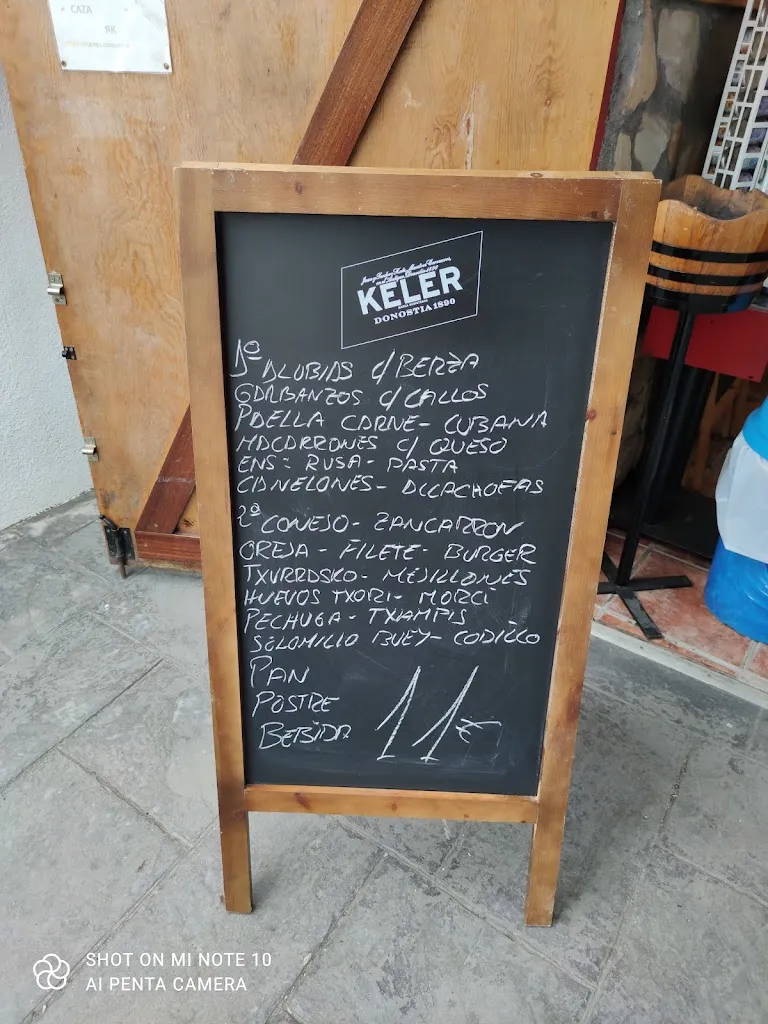 CAZA
KELER
DONOSTIA 1890
1º ALUBIAS C/ BERZA
GARBANZOS C/ CALLOS
PAELLA CARNE - CUBANA
MACARRONES C/ QUESO
ENS: RUSA - PASTA
CANELONES - ALCACHOFAS
2º CONEJO - ZANCARRON
OREJA - FILETE - BURGER
TXURRASKO - MEJILLONES
HUEVOS TXORI - MORCI
PECHUGA - TXAMPIS
SOLOMILLO BUEY - CODILLO
PAN
POSTRE
BEBIDA 11€
SHOT ON MI NOTE 10
AI PENTA CAMERA